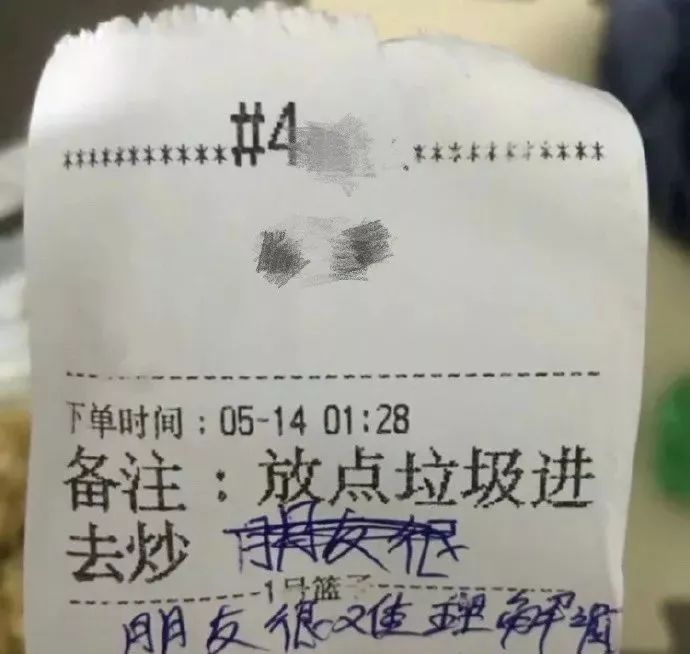 ***********#4 ***********
下单时间：05-14 01:28
备注：放点垃圾进
去炒 朋友很
1号篮子
朋友很难理解